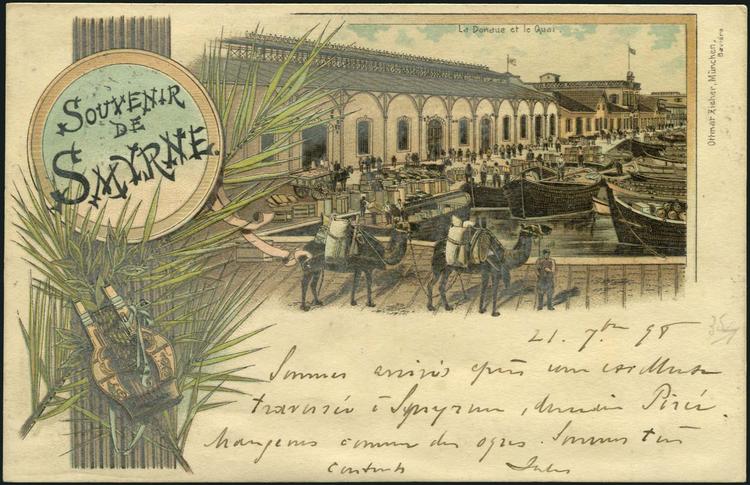 SOUVENIR
DE
SMYRNE.
La Douane et le Quai.
Ottmar Zieher, München,
Bavière
21. 7bre 98
Sommes arrivés après une excellente
traversée à Smyrne, demain Pirée.
Mangeons comme des ogres. Sommes très
contents Jules